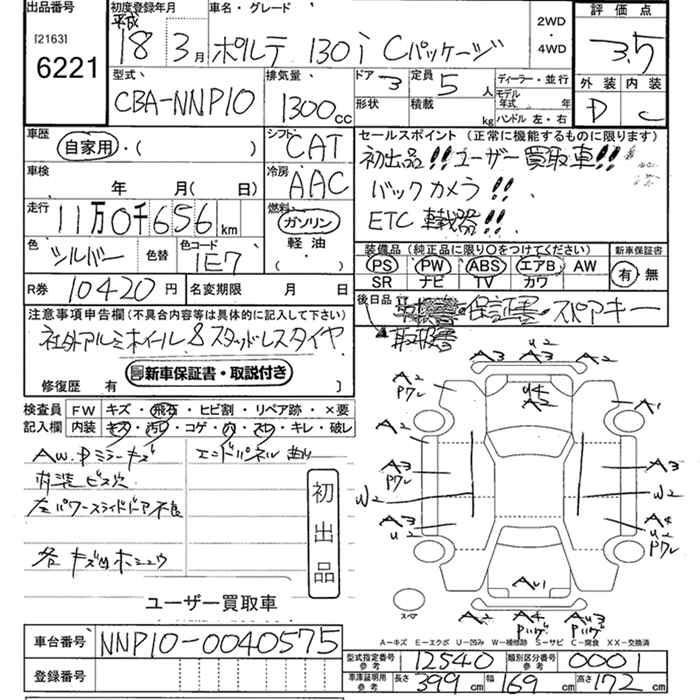 出品番号
[2163]
6221
初度登録年月
平成
18 3月
車名・グレード
ポルテ 130i Cパッケージ
2WD
・
4WD
評価点
3.5
外装 内装
D C
型式
CBA-NNP10
排気量
1300cc
ドア 3
形状
定員 5人
積載 kg
ディーラー・並行
モデル年式 年
ハンドル 左・右
車歴
自家用・( )
シフト
CAT
車検
年 月( 日)
冷房
AAC
走行
11万0千656km
燃料
ガソリン
軽油
・( )
色
シルバー
色替
色コード
1E7
R券 10420円
名変期限 月 日
セールスポイント(正常に機能するものに限ります)
初出品!!ユーザー買取車!!
バックカメラ!!
ETC 車載器!!
装備品(純正品に限り○をつけてください)
PS PW ABS エアB AW
SR ナビ TV カワ
新車保証書
有・無
後日品
保証書 スペアキー
取扱書
注意事項申告欄(不具合内容等は具体的に記入して下さい)
社外アルミホイル&スタッドレスタイヤ
新車保証書・取説付き
修復歴 有( )
検査員記入欄
FW キズ・飛石・ヒビ割・リペア跡・×要
内装 キズ・汚れ・コゲ・穴・スレ・キレ・破レ
AW.Dミラーキズ
内装ビス穴
左パワースライドドア不良
各キズ凹ホシュウ
エンドパネル曲り
初出品
ユーザー買取車
A2 A3 u2 A2
A2
Pワレ
u4
A2
A1
A2
A3
Pワレ
A3
W2
W2
A3
u2
A4
u2
Pワレ
Au1
スペア
A2 A4 Au3
A-キズ E-エクボ U-凹み W-補修跡 S-サビ C-腐食 XX-交換済
車台番号 NNP10-0040575
登録番号
型式指定番号 参考 12540
類別区分番号 参考 0001
車庫証明用 参考 長さ 399cm 幅 169cm 高さ 172cm